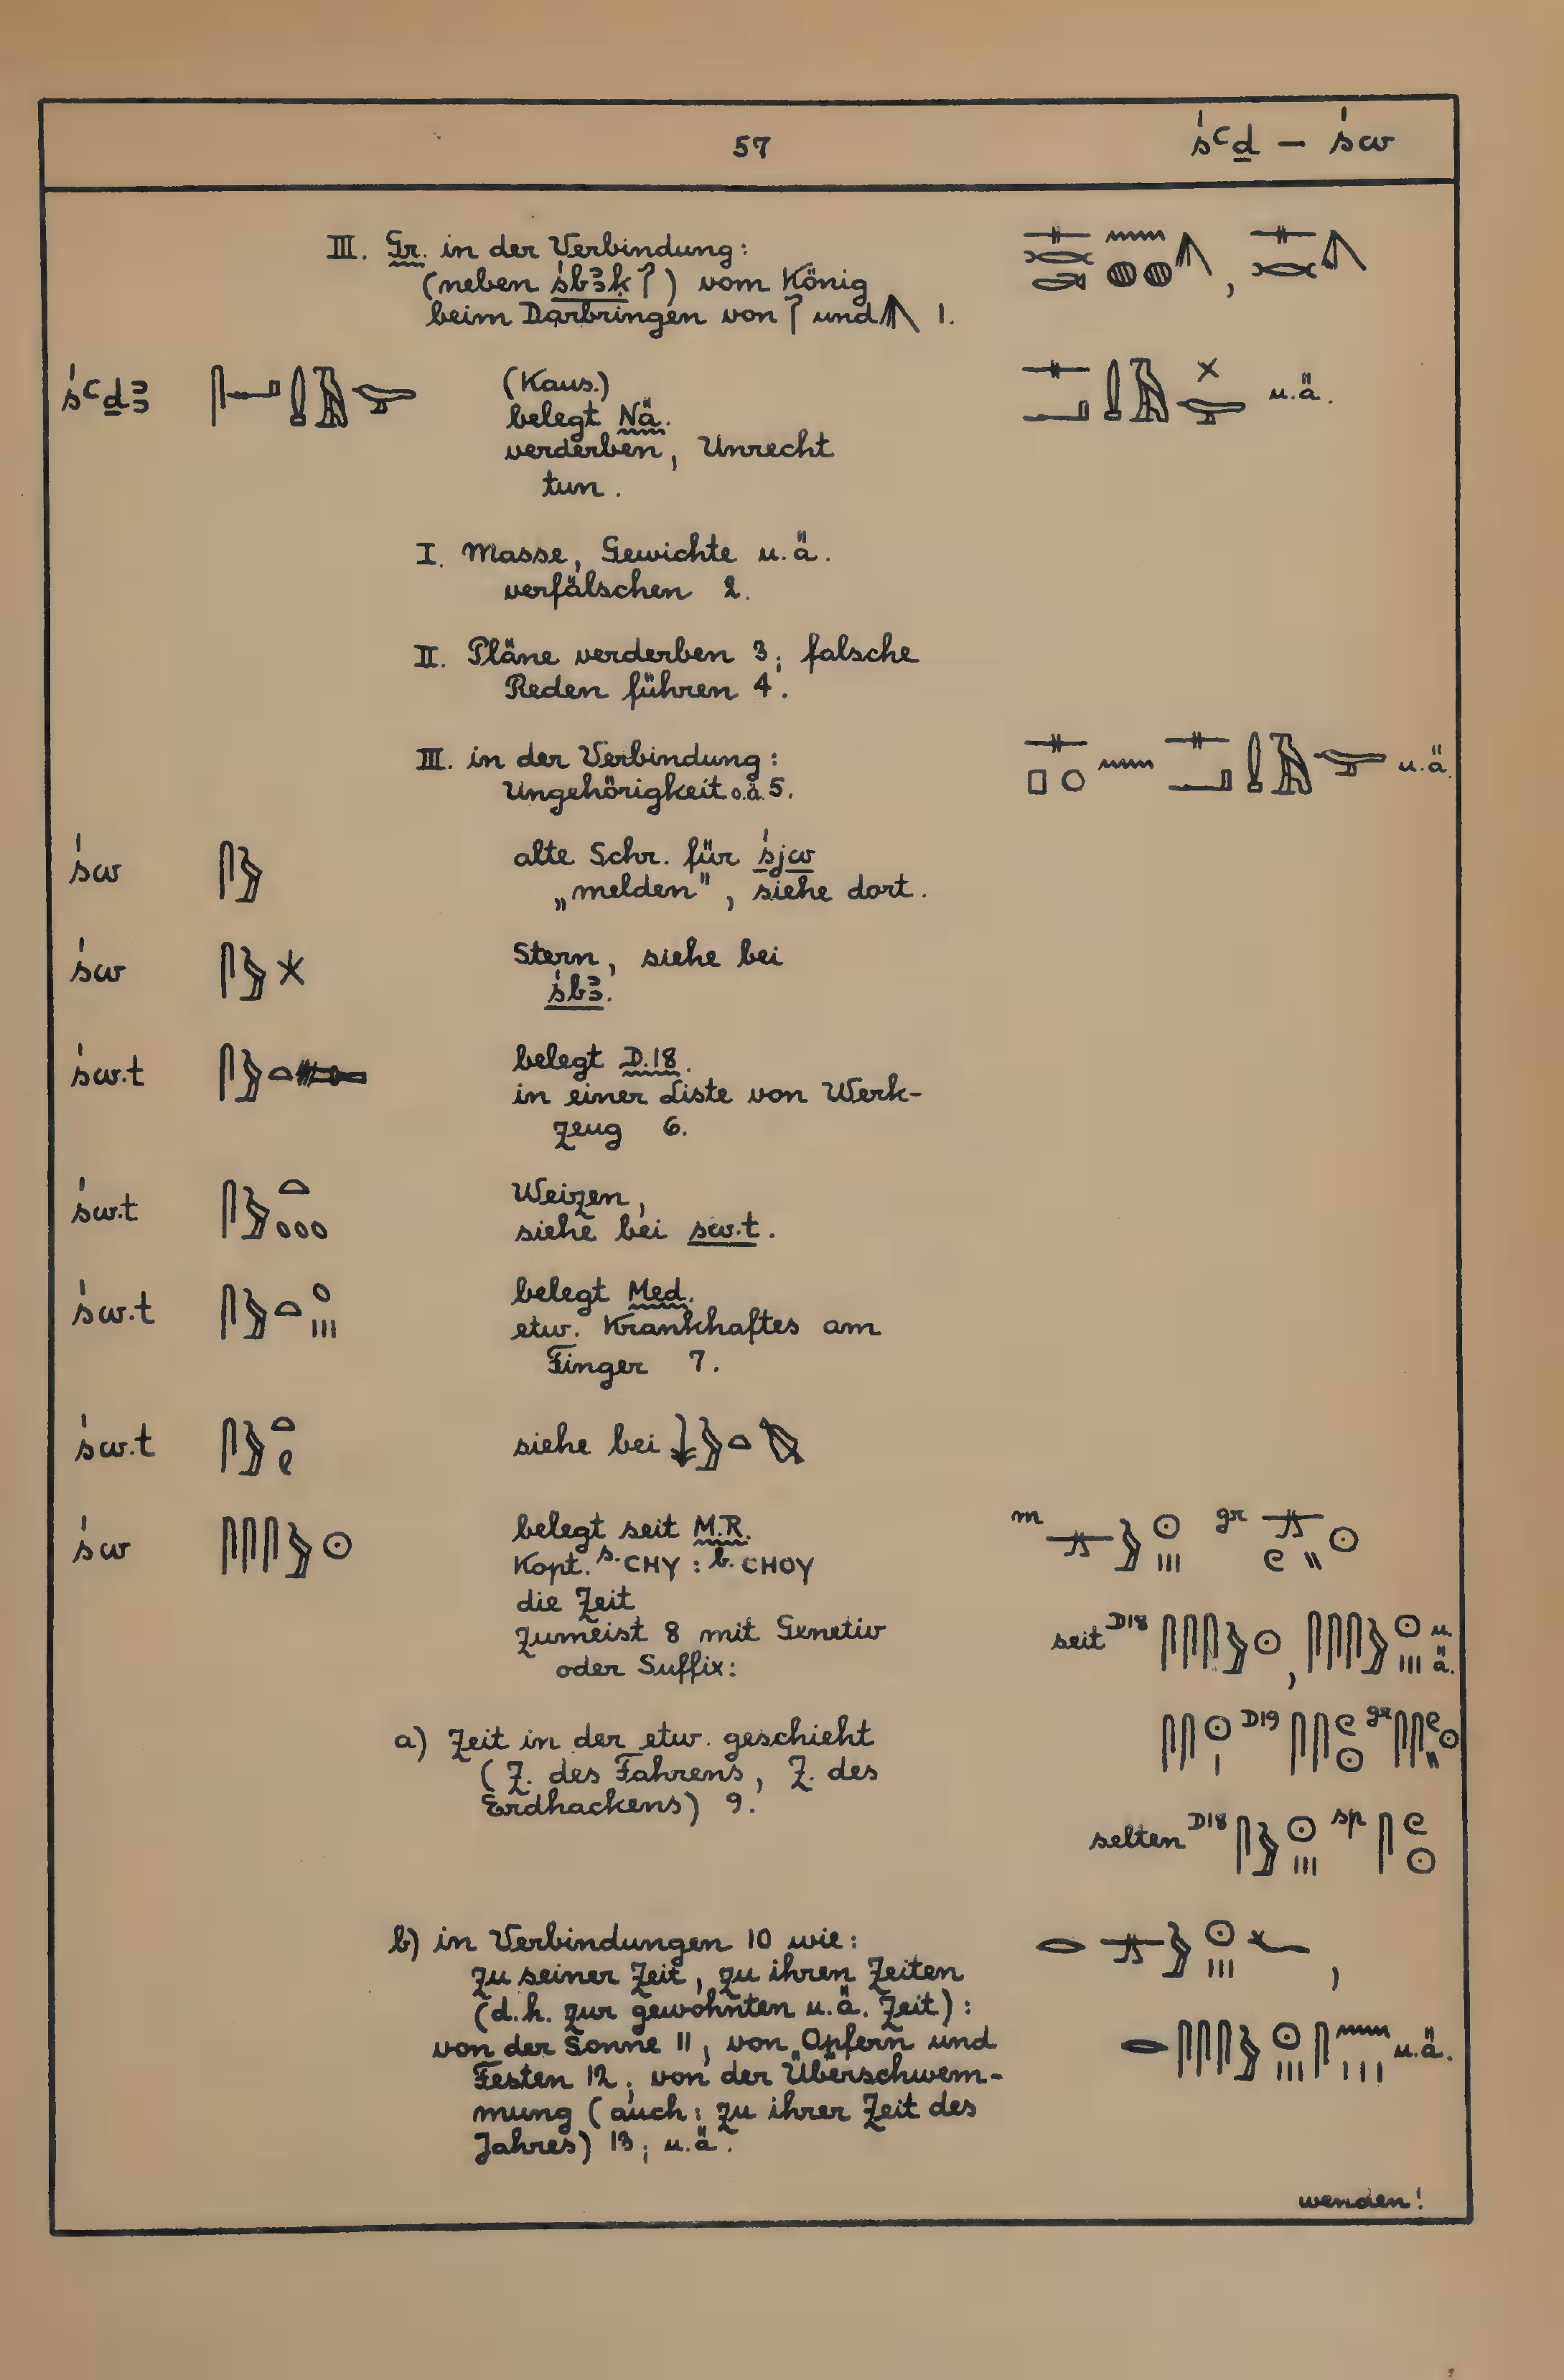 57 śꜥḏ – św
III. Gr. in der Verbindung:
(neben śbꜣḳ 𓋾) vom König
beim Darbringen von 𓋾 und 1.
śꜥḏꜣ (Kaus.) u.ä.
belegt Nä.
verderben, Unrecht
tun.
I. Masse, Gewichte u.ä.
verfälschen 2.
II. Pläne verderben 3; falsche
Reden führen 4.
III. in der Verbindung: u.ä.
Ungehörigkeit o.ä. 5.
św alte Schr. für śjw
„melden", siehe dort.
św 𓋴𓅱𓇼 Stern, siehe bei
śbꜣ.
św.t belegt D.18.
in einer Liste von Werk-
zeug 6.
św.t Weizen,
siehe bei sw.t.
św.t belegt Med.
etw. Krankhaftes am
Finger 7.
św.t siehe bei
św 𓋴𓋴𓋴𓅱𓇳 belegt seit M.R. m gr
Kopt. s. CHY : b. CHOY
die Zeit
zumeist 8 mit Genetiv seit D18 𓋴𓋴𓋴𓅱𓇳, 𓋴𓋴𓋴𓅱𓇳𓏥 u.
oder Suffix: ä.
a) Zeit in der etw. geschieht 𓋴𓋴𓇳𓏤 D19 𓋴𓋴𓏲𓇳 gr 𓋴𓋴𓏲𓏭𓇳
(Z. des Fahrens, Z. des
Erdhackens) 9.
selten D18 𓋴𓅱𓇳𓏥 sp 𓋴𓏲𓇳
b) in Verbindungen 10 wie:
zu seiner Zeit, zu ihren Zeiten
(d.h. zur gewohnten u.ä. Zeit):
von der Sonne 11, von Opfern und 𓂋𓋴𓋴𓋴𓅱𓇳𓏥𓋴𓈖𓏥 u.ä.
Festen 12; von der Überschwem-
mung (auch: zu ihrer Zeit des
Jahres) 13; u.ä.
wenden!